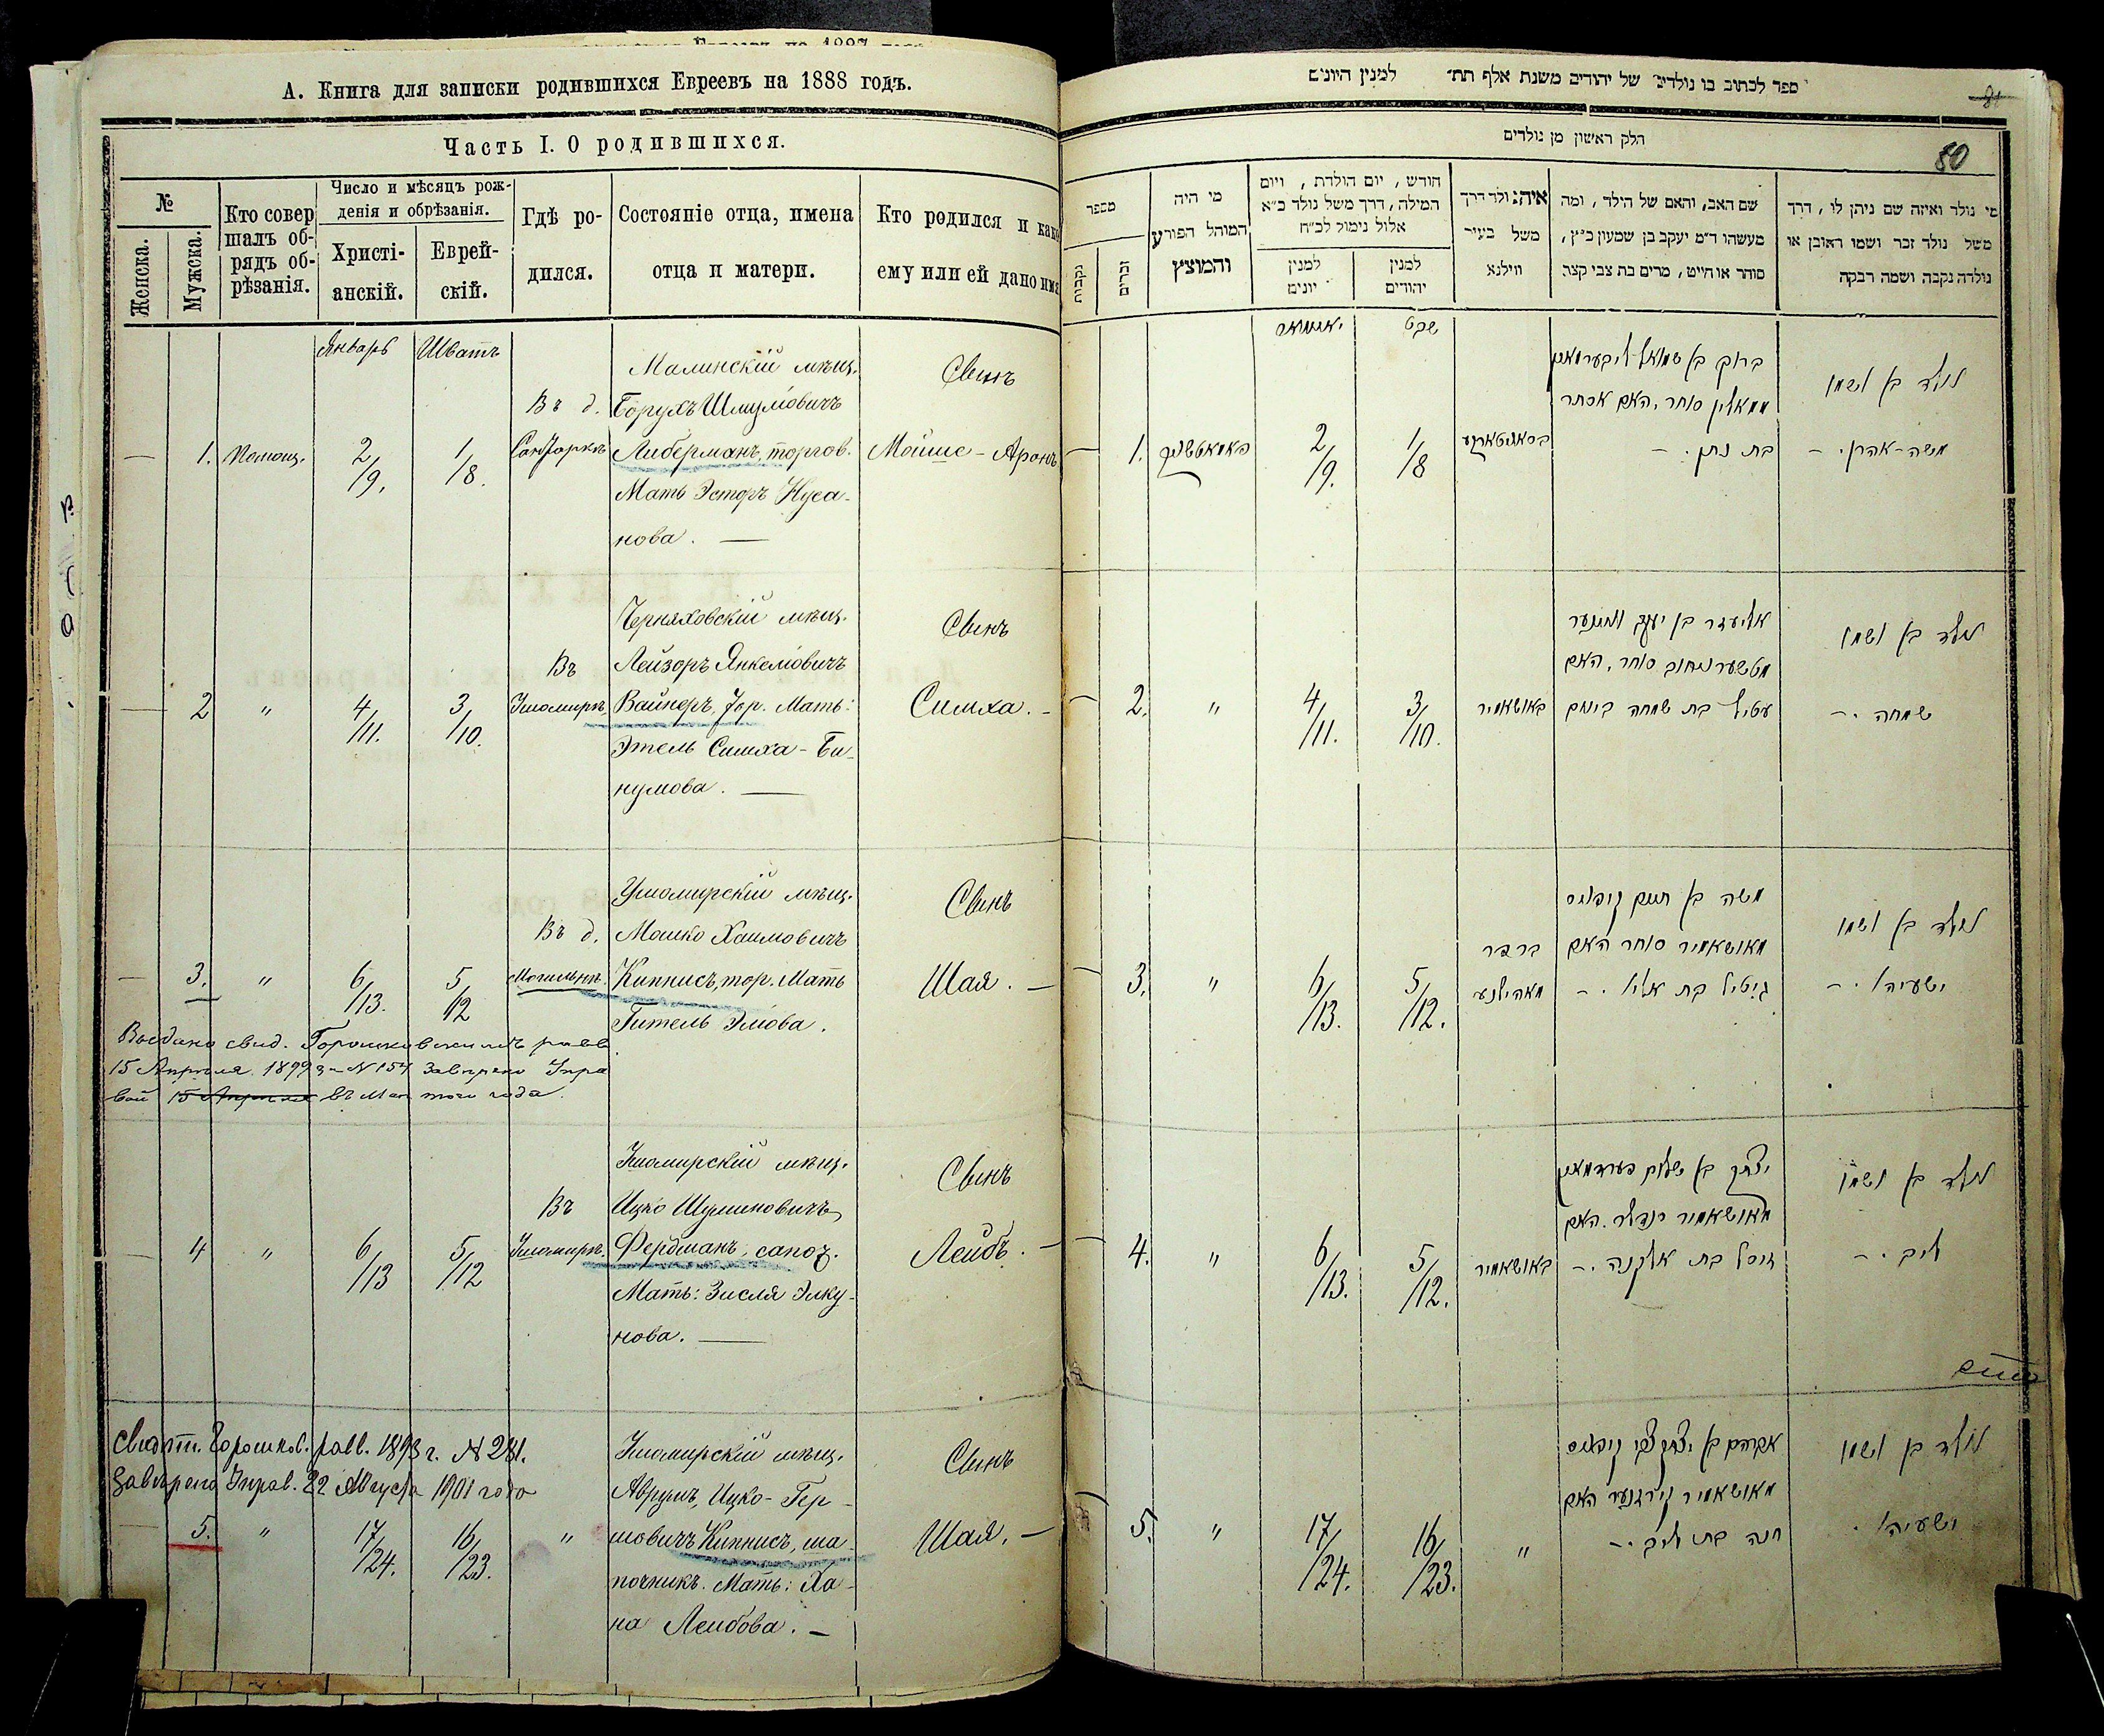 А. Книга для записки родившихся Евреевъ на 1888 годъ.
Часть I. О родившихся.
№
Женска.
Мужска.
Кто совер
шалъ об-
рядъ об-
рѣзанія.
Число и мѣсяцъ рож-
денія и обрѣзанія.
Христі-
анскій.
Еврей-
скій.
Гдѣ ро-
дился.
Состояніе отца, имена
отца и матери.
Кто родился и како
ему или ей дано имя
Январь
Шватъ
— 1. Помощ. 2/9. 1/8.
Въ д.
Малинскій мѣщ.
Борухъ Шмуліовичъ
Либерманъ, торгов.
Мать Эстеръ Нуса-
нова. —
Сынъ
Мойше - Аронъ
— 2 " 4/11. 3/10.
Въ
Ушомирѣ
Черняховскій мѣщ.
Лейзоръ Янкеліовичъ
Вайнеръ, тор. Мать:
Этель Симха - Би-
нумова. —
Сынъ
Симха. -
— 3. " 6/13. 5/12
Въ д.
Могильнѣ.
Ушомирскій мѣщ.
Мошко Хаимовичъ
Киннисъ, тор. Мать
Гительь Эліова.
Сынъ
Шая. —
Выдано свид. Горошковскимъ равв.
15 Апрѣля 1899 за N 154 Завѣрено Упра
вой 15 Апрѣля въ Маѣ того года.
— 4 " 6/13 5/12
Въ
Ушомирѣ.
Ушомирскій мѣщ.
Ицко Шулимовичъ
Фердманъ, сапож.
Мать: Зисля Элку-
нова. —
Сынъ
Лейбъ. —
Свидѣт. Горошков. равв. 1893 г. N 281.
Завѣрено Управ. 22 Августа 1901 года
— 5. " 17/24. 16/23. "
Ушомирскій мѣщ.
Аврумъ, Ицко - Гер-
шовичъ Киннисъ, ша-
почникъ. Мать: Ха-
на Лейбова. —
Сынъ
Шая. —
ספר לכתוב בו נולדים של יהודים משנת אלף תת״ למנין היונים
חלק ראשון מן נולדים
80
מספר
נקבות
זכרים
מי היה
המוהל הפורע
והמוצץ
חודש, יום הולדת, ויום
המילה, דרך משל נולד כ״א
אלול נימול לכ״ח
למנין
יונים
למנין
יהודים
איה נולד דרך
משל בעיר
ווילנא
שם האב, והאם של הילד, ומה
מעשהו ד״מ יעקב בן שמעון כ״ץ,
סוחר או חייט, מרים בת צבי קצב
מי נולד ואיזה שם ניתן לו, דרך
משל נולד זכר ושמו ראובן או
נולדה נקבה ושמה רבקה
יאנואר
שבט
— 1. 2/9. 1/8
ברוך בן שמואל ליבערמאן
ממאלין סוחר, האם אסתר
בת נתן. -
נולד בן ושמו
משה - אהרן. -
— 2. " 4/11. 3/10.
באושאמיר
אליעזר בן יעקב וויינער
מטשערניחוב סוחר, האם
עטיל בת שמחה בינום
נולד בן ושמו
שמחה. -
— 3. " 6/13. 5/12.
בכפר
מאהילנע
משה בן חיים קיפניס
מאושאמיר סוחר האם
גיטיל בת אליו. -
נולד בן ושמו
ישעיהו. -
— 4. " 6/13. 5/12.
באושאמיר
יצחק בן שלום פערדמאן
מאושאמיר סנדלר. האם
זיסל בת אלקנה. -
נולד בן ושמו
ליב. -
5. " 17/24. 16/23. "
אברהם בן יצחק צבי קיפניס
מאושאמיר קירזנער האם
חנה בת ליב. -
נולד בן ושמו
ישעיהו.